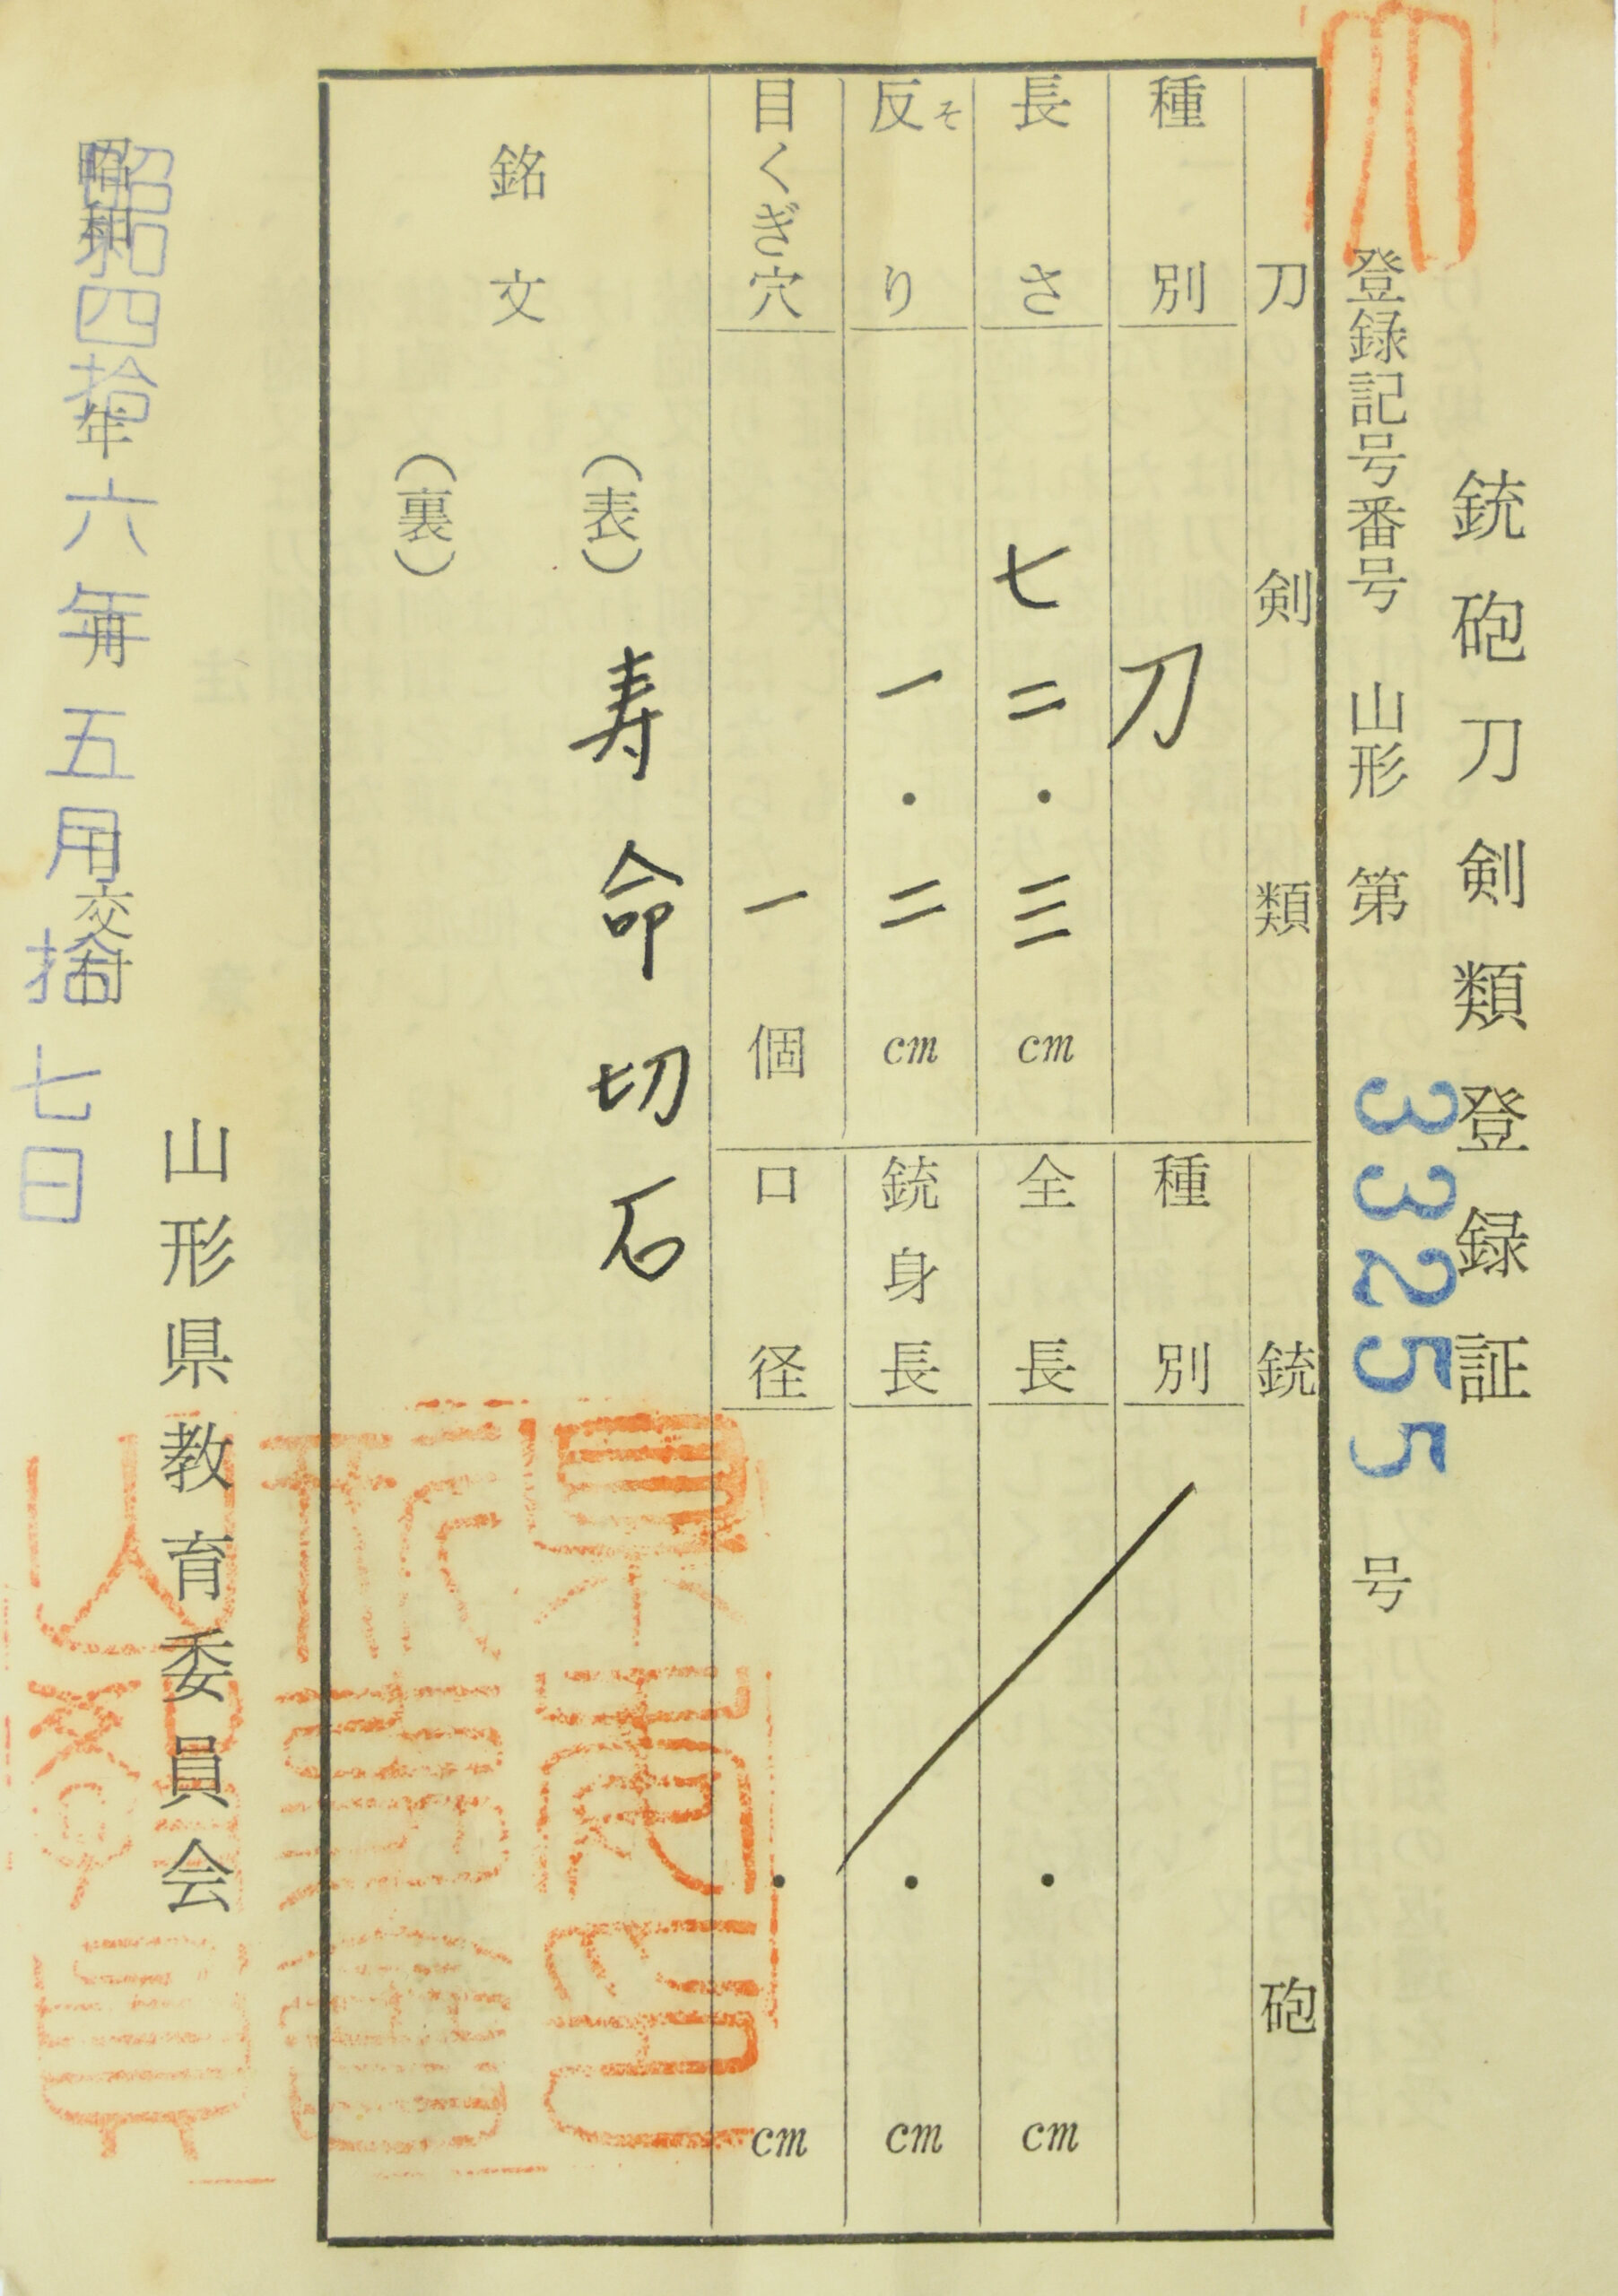 銃砲刀剣類登録証
登録記号番号 山形 第 33255 号
刀剣類
種別 刀
長さ 七二・三三 cm
反り 一・二 cm
そ
目くぎ穴 一 個
銃砲
種別
全長 ・ cm
銃身長 ・ cm
口径 ・ cm
銘文
（表） 寿命切石
（裏）
昭和 年 月 日交付
昭和四拾六年五月拾七日
山形県教育委員会